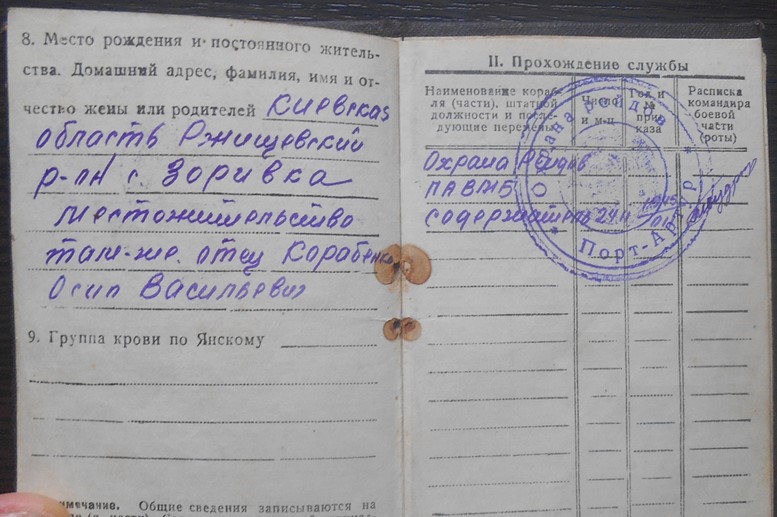 8. Место рождения и постоянного житель-
ства. Домашний адрес, фамилия, имя и от-
чество жены или родителей Киевская
область Ржищевский
р-он с. Зоривка
Местожительство
там-же. отец Корабенко
Осип Васильевич
9. Группа крови по Янскому
Общие сведения записываются на
II. Прохождение службы
Наименование кораб-
ля (части), штатной
должности и после-
дующие перемены
Число
и м-ц
Год и
№
при-
каза
Расписка
командира
боевой
части
(роты)
Охрана Рейдов
ПАВМБ
содержатель 24.11 1945
Охрана рейдов
Порт-Артур